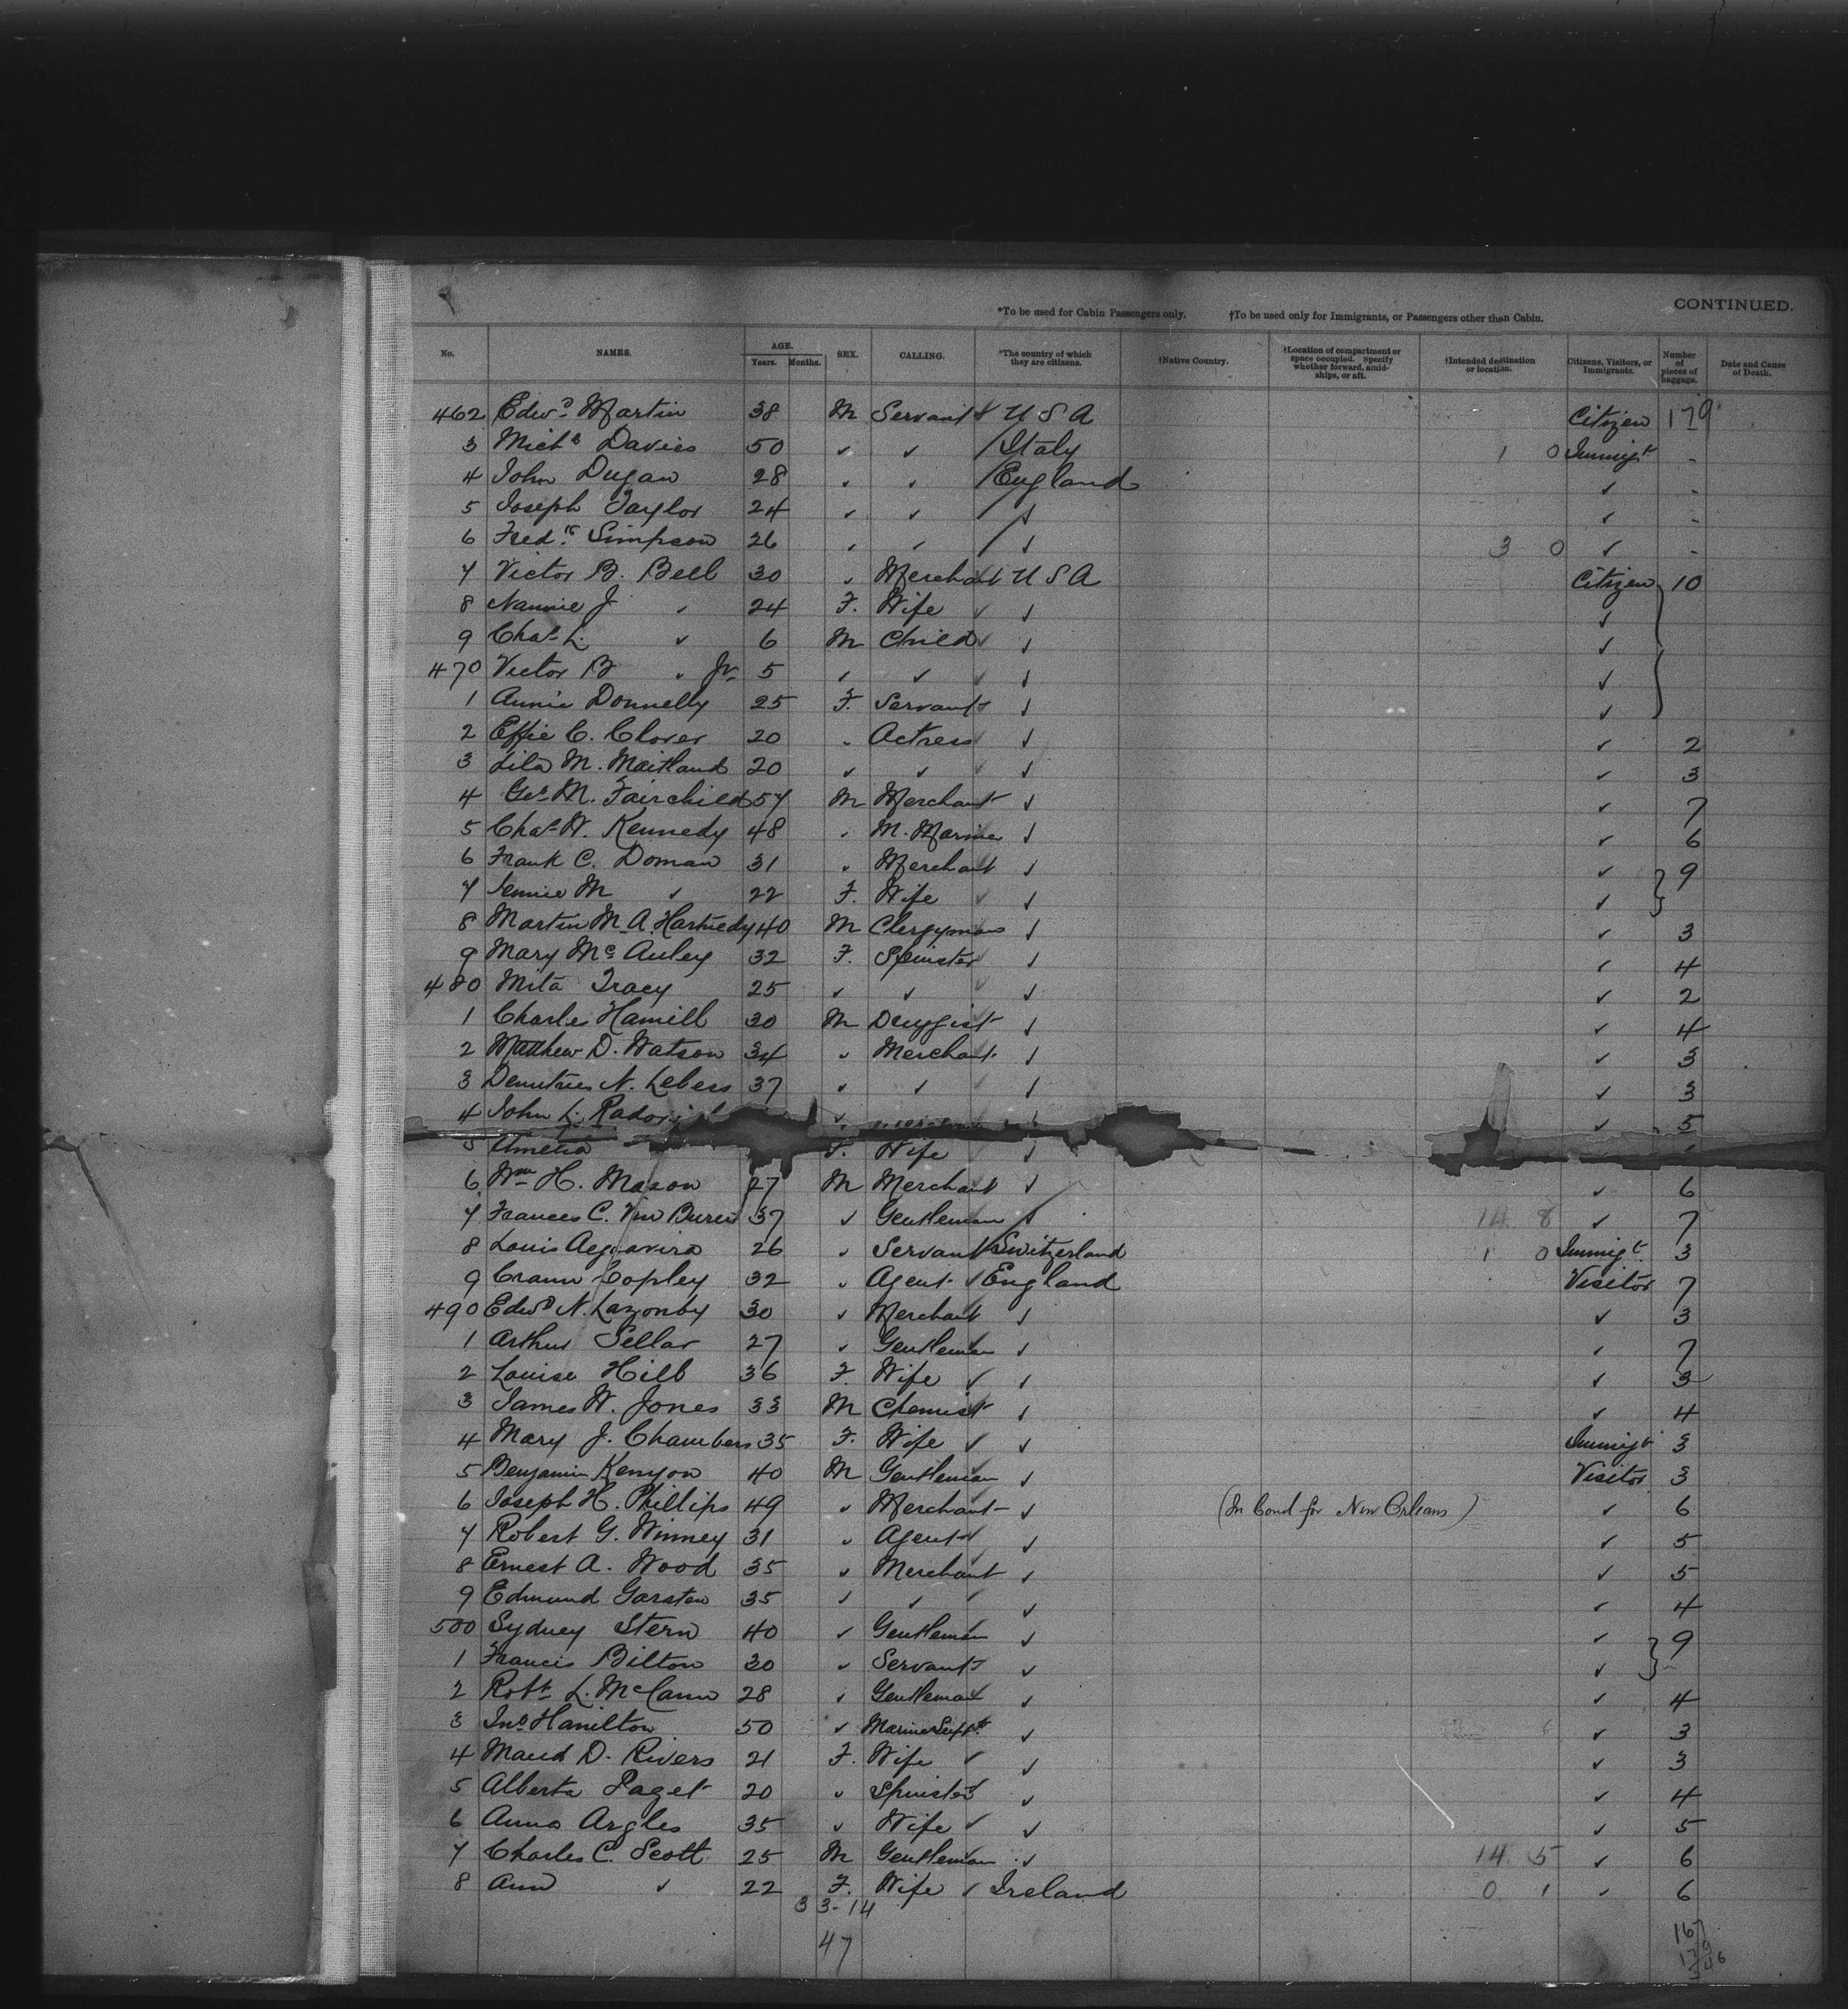 CONTINUED.
*To be used for Cabin Passengers only. †To be used only for Immigrants, or Passengers other than Cabin.
No. NAMES. AGE. Years. Months. SEX. CALLING. *The country of which they are citizens. †Native Country. †Location of compartment or space occupied. Specify whether forward, amidships, or aft. †Intended destination or location. Citizens, Visitors, or Immigrants. Number of pieces of baggage. Date and Cause of Death.
462 Edwd Martin 38 M Servant U S A Citizen 179
3 Davies 50 ✓ ✓ Italy 1 0 Immigt -
4 John Dugan 28 ✓ ✓ England ✓ -
5 Joseph Taylor 24 ✓ ✓ ✓ ✓ -
6 Fredk Simpson 26 ✓ ✓ ✓ 3 0 ✓ -
7 Victor B. Bell 30 ✓ Merchant U S A Citizen 10
8 Nannie J. ✓ 24 F. Wife ✓ ✓ ✓
9 Chas L. ✓ 6 M Child ✓ ✓ ✓
470 Victor B ✓ Jr 5 ✓ ✓ ✓ ✓ ✓
1 Annie Donnelly 25 F. Servant ✓ ✓
2 Effie C. Clover 20 ✓ Actress ✓ ✓ 2
3 Lila M. Maitland 20 ✓ ✓ ✓ ✓ ✓ 3
4 Geo M. Fairchild 57 M Merchant ✓ ✓ 7
5 Chas W. Kennedy 48 ✓ M. Mariner ✓ ✓ 6
6 Frank C. Doman 31 ✓ Merchant ✓ ✓ 9
7 Jennie M ✓ 22 F. Wife ✓ ✓ ✓
8 Martin M. A. Hartnedy 40 M Clergyman ✓ ✓ 3
9 Mary McAuley 32 F. Spinster ✓ ✓ 4
480 Mita Tracy 25 ✓ ✓ ✓ ✓ ✓ 2
1 Charles Hamill 30 M Druggist ✓ ✓ 4
2 Matthew D. Watson 34 ✓ Merchant ✓ ✓ 3
3 N. 37 ✓ ✓ ✓ ✓ ✓ 3
4 John L. ✓ ✓ ✓ 5
5 Amelia F. Wife ✓ ✓
6 Wm H. Mason 27 M Merchant ✓ ✓ 6
7 Frances C. Van Buren 37 ✓ Gentleman ✓ 14 8 ✓ 7
8 Louis 26 ✓ Servant Switzerland 1 0 Immigt 3
9 Copley 32 ✓ Agent ✓ England Visitor 7
490 Edwd N. Lazonby 30 ✓ Merchant ✓ ✓ 3
1 Arthur Sellar 27 ✓ Gentleman ✓ ✓ 7
2 Louisa Hill 36 F. Wife ✓ ✓ ✓ 3
3 James W. Jones 33 M Chemist ✓ ✓ 4
4 Mary J. Chambers 35 F. Wife ✓ ✓ Immigt 3
5 Benjamin Kenyon 40 M Gentleman ✓ Visitor 3
6 Joseph H. Phillips 49 ✓ Merchant ✓ (In bond for New Orleans) ✓ 6
7 Robert G. Winney 31 ✓ Agent ✓ ✓ 5
8 Ernest A. Wood 35 ✓ Merchant ✓ ✓ 5
9 Edmund Garsten 35 ✓ ✓ ✓ ✓ ✓ 4
500 Sydney Stern 40 ✓ Gentleman ✓ ✓ 9
1 Francis Bilton 30 ✓ Servant ✓ ✓ -
2 Robt L. McCann 28 ✓ Gentleman ✓ ✓ 4
3 Jno Hamilton 50 ✓ Marine Supt ✓ ✓ 3
4 Maud D. Rivers 21 F. Wife ✓ ✓ ✓ 3
5 Alberta Paget 20 ✓ Spinster ✓ ✓ 4
6 Anna Argles 35 ✓ Wife ✓ ✓ ✓ 5
7 Charles C. Scott 25 M Gentleman ✓ 14 5 ✓ 6
8 Ann ✓ 22 F. Wife ✓ Ireland 0 1 ✓ 6
33-14
47
167
179
346